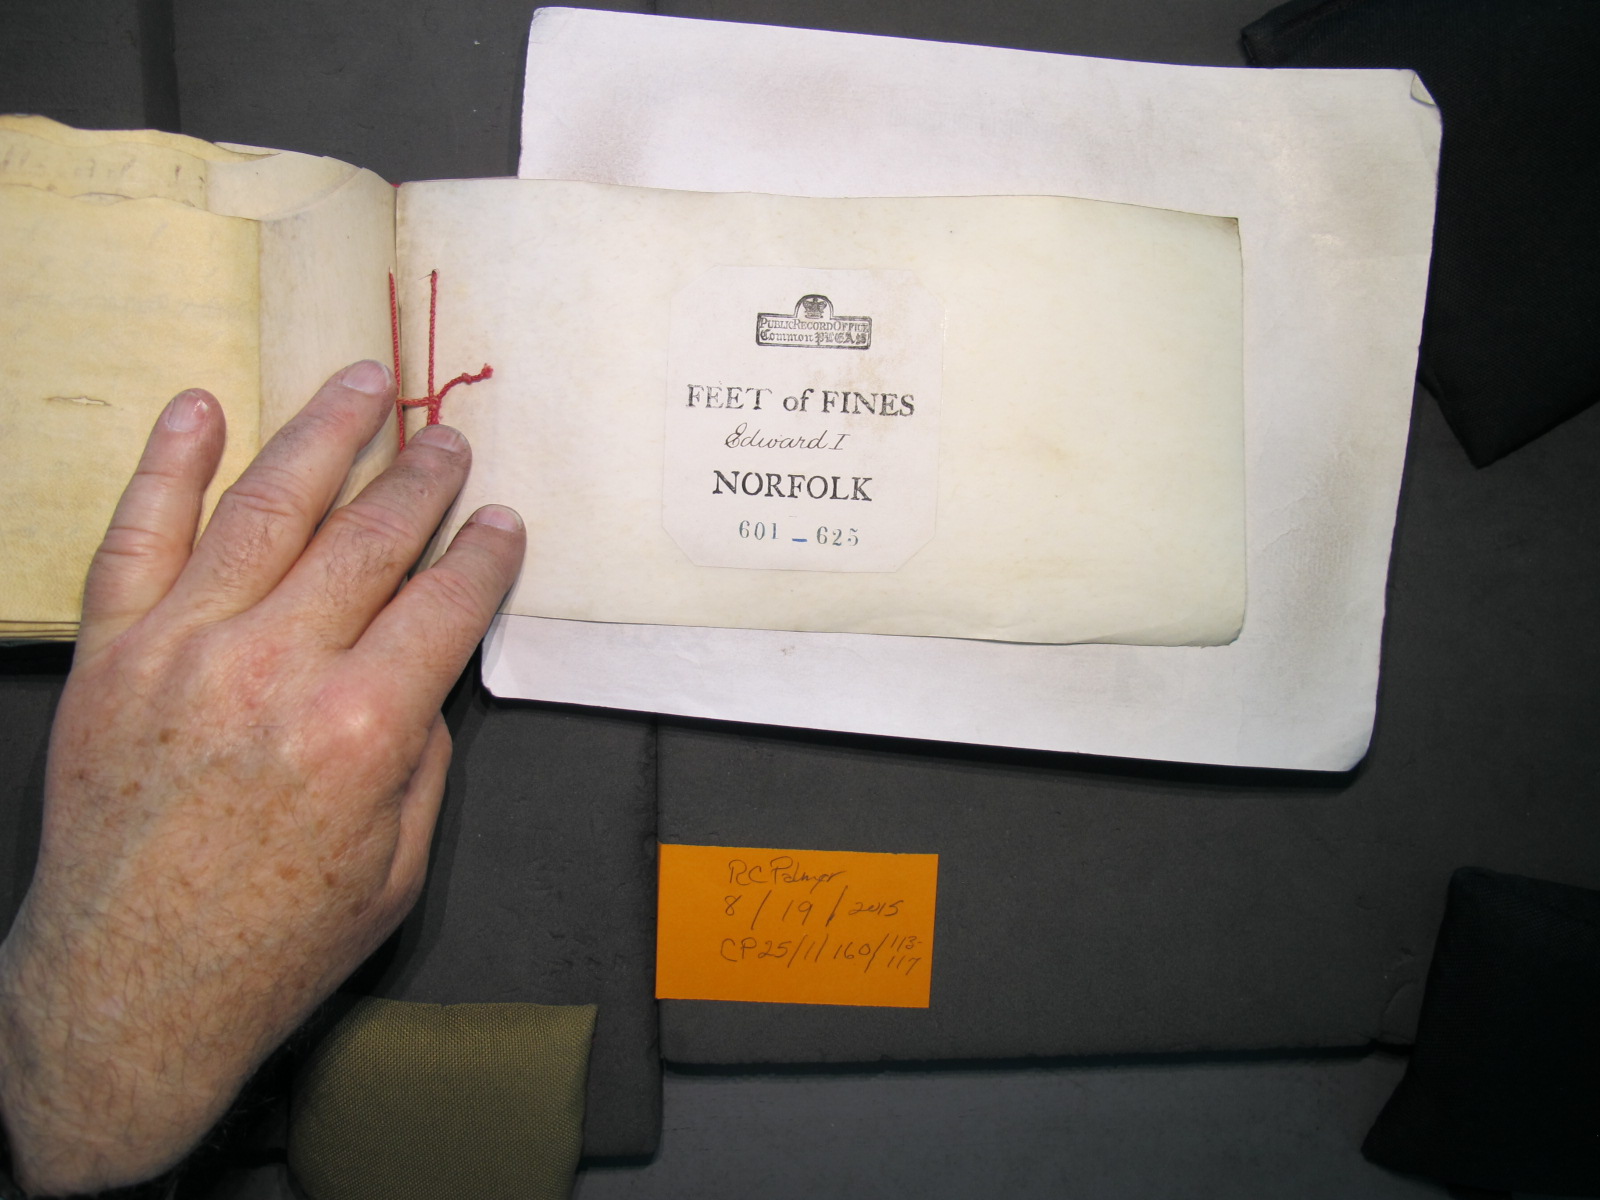 PUBLIC RECORD OFFICE
Common PLEAS
FEET of FINES
Edward I
NORFOLK
601 - 625
RC Palmer
8 / 19 / 2015
CP25/1/160/113-
117